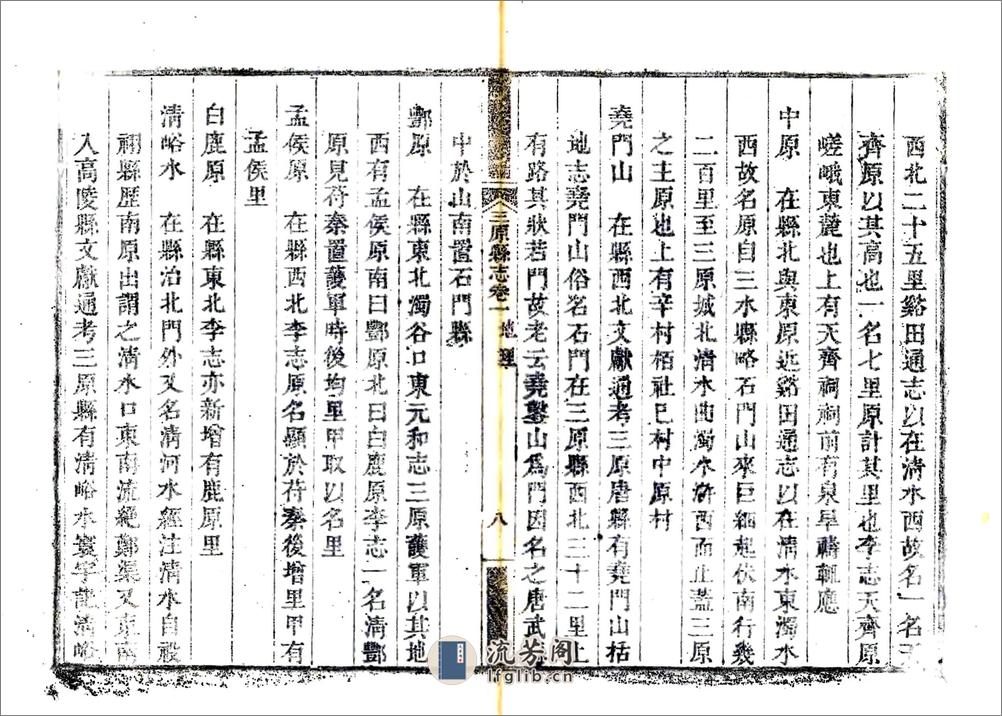 西北二十五里谿田通志以在清水西故名一名天
齊原以其高也一名七里原計其里也李志天齊原
嵯峨東麓也上有天齊祠祠前有泉旱禱輒應
中原　在縣北與東原近谿田通志以在清水東濁水
西故名原自三水縣略石門山來巨緬起伏南行幾
二百里至三原城北清水曲濁水滸西而止蓋三原
之主原也上有辛村栢社巳村中原村
堯門山　在縣西北文獻通考三原唐縣有堯門山括
地志堯門山俗名石門在三原縣西北三十二里上
有路其狀若門故老云堯鑿山爲門因名之唐武德
三原縣志卷一　地理　八
中於山南置石門縣
酆原　在縣東北濁谷口東元和志三原護軍以其地
西有孟侯原南曰酆原北曰白鹿原李志一名清酆
原見苻秦置護軍時後均里甲取以名里
孟侯原　在縣西北李志原名顯於苻秦後增里甲有
孟侯里
白鹿原　在縣東北李志亦新增有鹿原里
清峪水　在縣治北門外又名清河水經注清水自祋
祤縣歷南原出謂之清水口東南流絕鄭渠又東南
入高陵縣文獻通考三原縣有清峪水寰宇記清峪
流芳阁
lfglib.cn